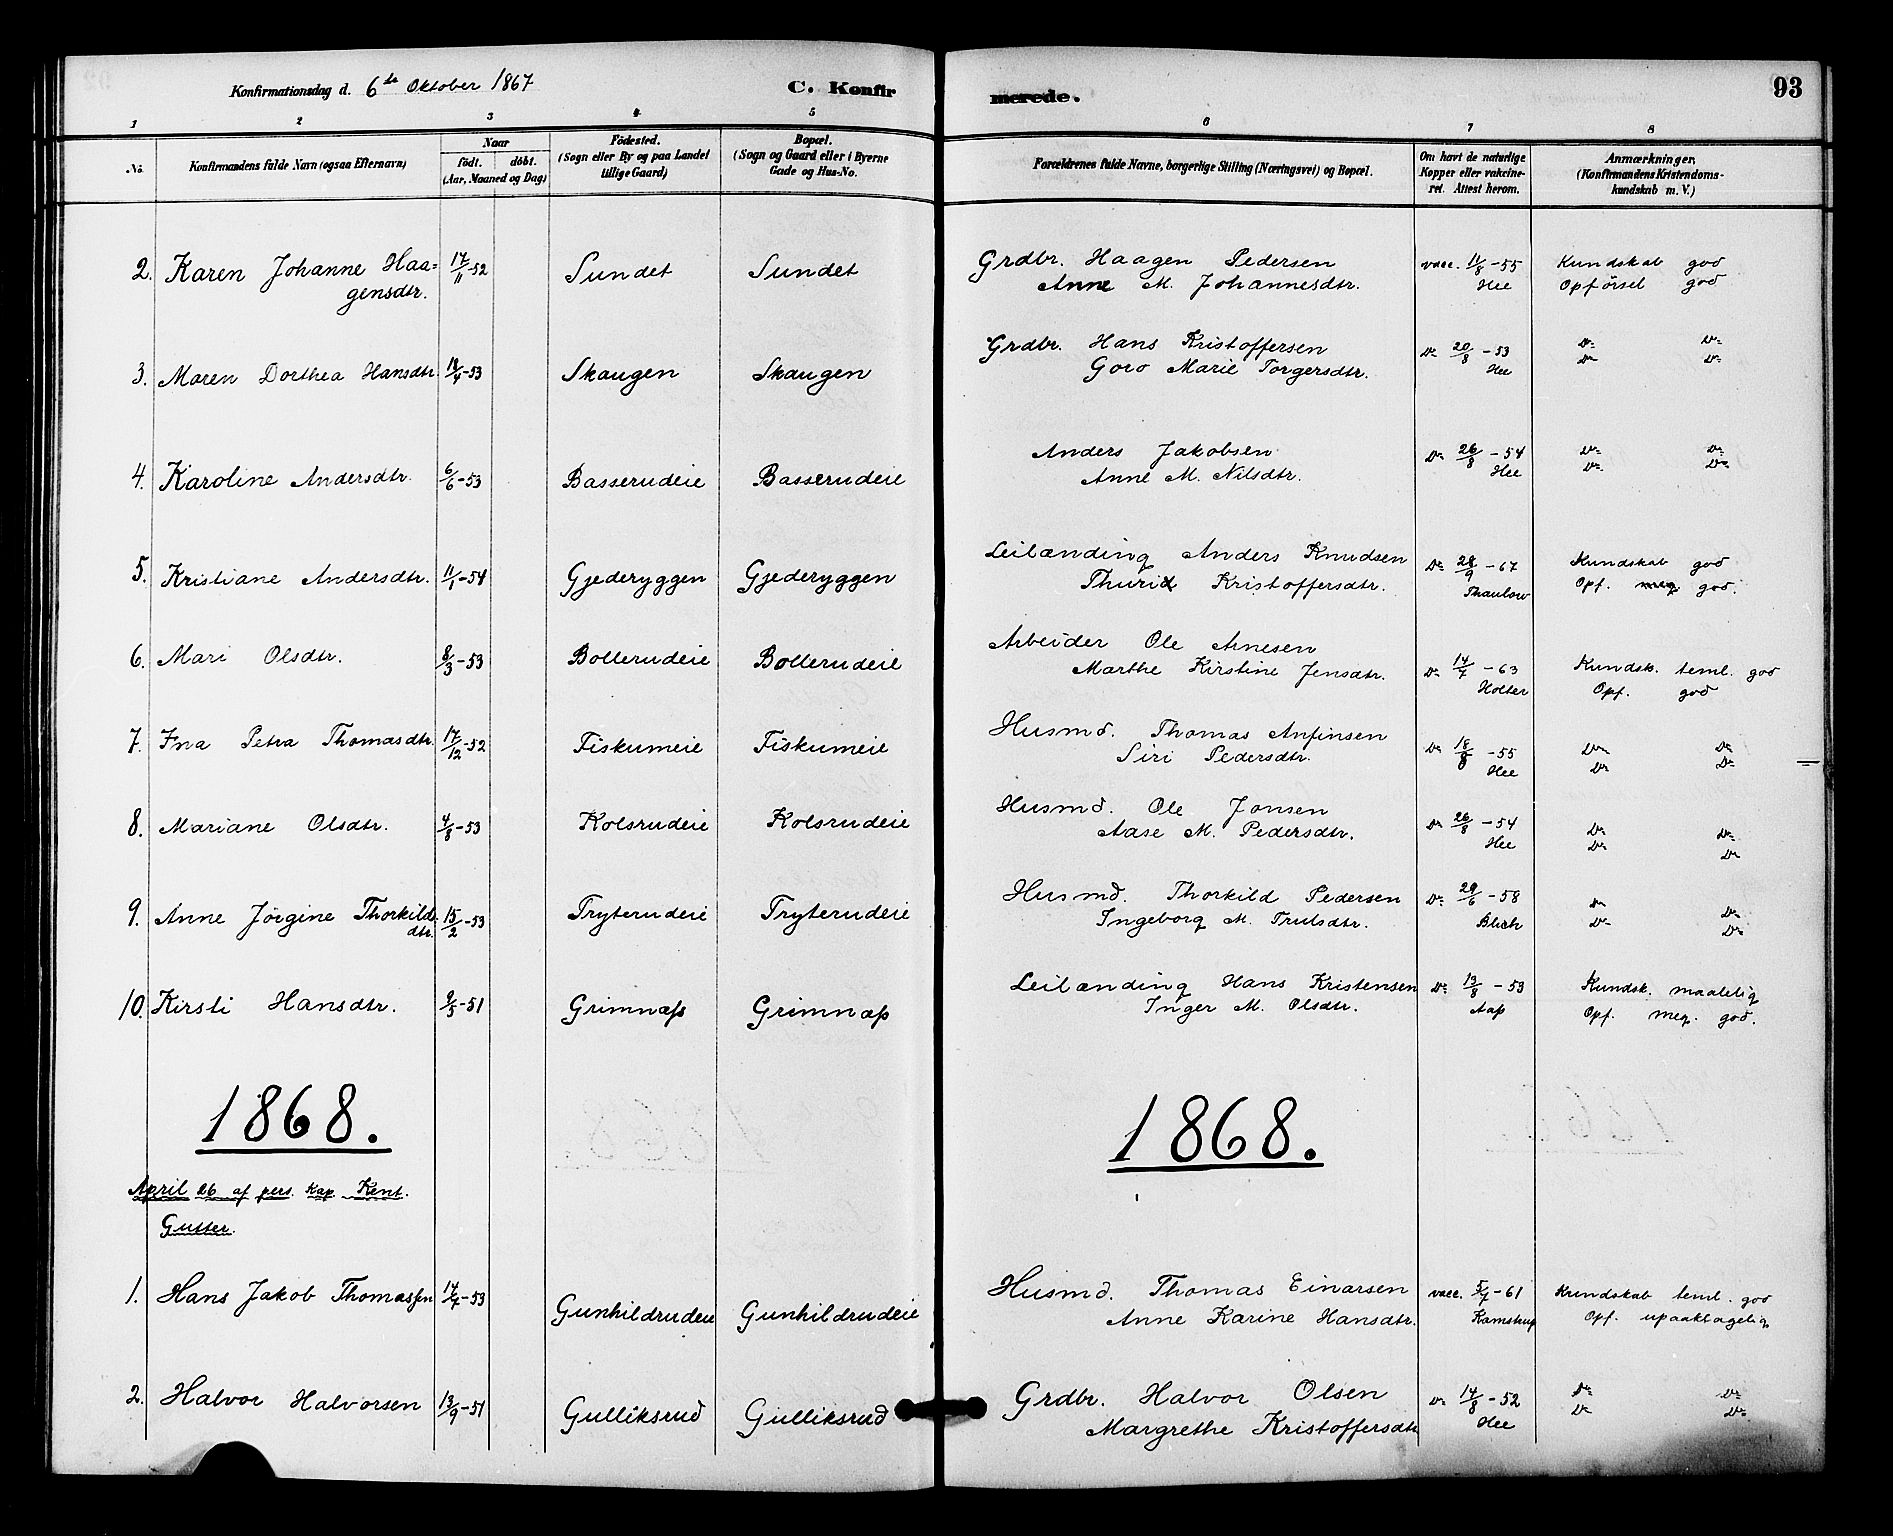 Konfirmationsdag d. 6te Oktober 1867
C. Konfirmerede.
93
1 2 3 4 5 6 7 8
No.
Konfirmandens fulde Navn (ogsaa Efternavn)
Naar
födt. döbt.
(Aar, Maaned og Dag)
Födested.
(Sogn eller By og paa Landet
tillige Gaard)
Bopæl.
(Sogn og Gaard eller i Byerne
Gade og Hus-No.
Forældrenes fulde Navne, borgerlige Stilling (Næringsvei) og Bopæl.
Om havt de naturlige
Kopper eller vakcine-
ret. Attest herom.
Anmærkninger.
(Konfirmandens Kristendoms-
kundskab m. V.)
2. Karen Johanne Haa- 17/11-52 Sundet Sundet Grdbr. Haagen Pedersen vacc. 11/8-55 Kundskab god
gensdtr. Anne M. Johannesdtr. Hee Opførsel god
3. Maren Dorthea Hansdtr. 12/4-53 Skaugen Skaugen Grdbr. Hans Kristoffersen Do 20/8-53 Do Do
Goro Marie Torgersdtr. Hee Do Do
4. Karoline Andersdtr. 6/6-53 Basserudeie Basserudeie Anders Jakobsen Do 26/8-54 Do Do
Anne M. Nilsdtr. Hee Do Do
5. Kristiane Andersdtr. 11/1-54 Gjederyggen Gjederyggen Leilænding Anders Knudsen Do 28/9-67 Kundskab god
Thurid Kristoffersdtr. Thaulow Opf. meg god.
6. Mari Olsdtr. 8/3-53 Bollerudeie Bollerudeie Arbeider Ole Arnesen Do 14/7-63 Kundsk. teml. god
Marthe Kirstine Jensdtr. Holter Opf. god
7. Ina Petra Thomasdtr. 17/12-52 Fiskumeie Fiskumeie Husmd. Thomas Anfinsen Do 18/8-55 Do Do
Siri Pedersdtr. Hee Do Do
8. Mariane Olsdtr. 4/8-53 Kolsrudeie Kolsrudeie Husmd. Ole Jonsen Do 26/8-54 Do Do
Aase M. Pedersdtr. Hee Do Do
9. Anne Jörgine Thorkilds- 15/2-53 Tryterudeie Tryterudeie Husmd. Thorkild Pedersen Do 29/6-58 Do Do
dtr. Ingeborg M. Trulsdtr. Blich Do Do
10. Kirsti Hansdtr. 9/5-51 Grimnæss Grimnæss Leilænding Hans Kristensen Do 13/8-53 Kundsk. maalelig
Inger M. Olsdtr. Aass Opf. meg. god.
1868. 1868.
April 26 af pers. Kap. Kent.
Gutter.
1. Hans Jakob Thomassen 14/4-53 Gunhildrudeie Gunhildrudeie Husmd. Thomas Einarsen vacc. 5/7-61 Kundskab teml. god
Anne Karine Hansdtr. Kamstrup Opf. upaaklagelig
2. Halvor Halvorsen 13/9-51 Gulliksrud Gulliksrud Grdbr. Halvor Olsen Do 14/8-52 Do Do
Margrethe Kristoffersdtr Hee Do Do